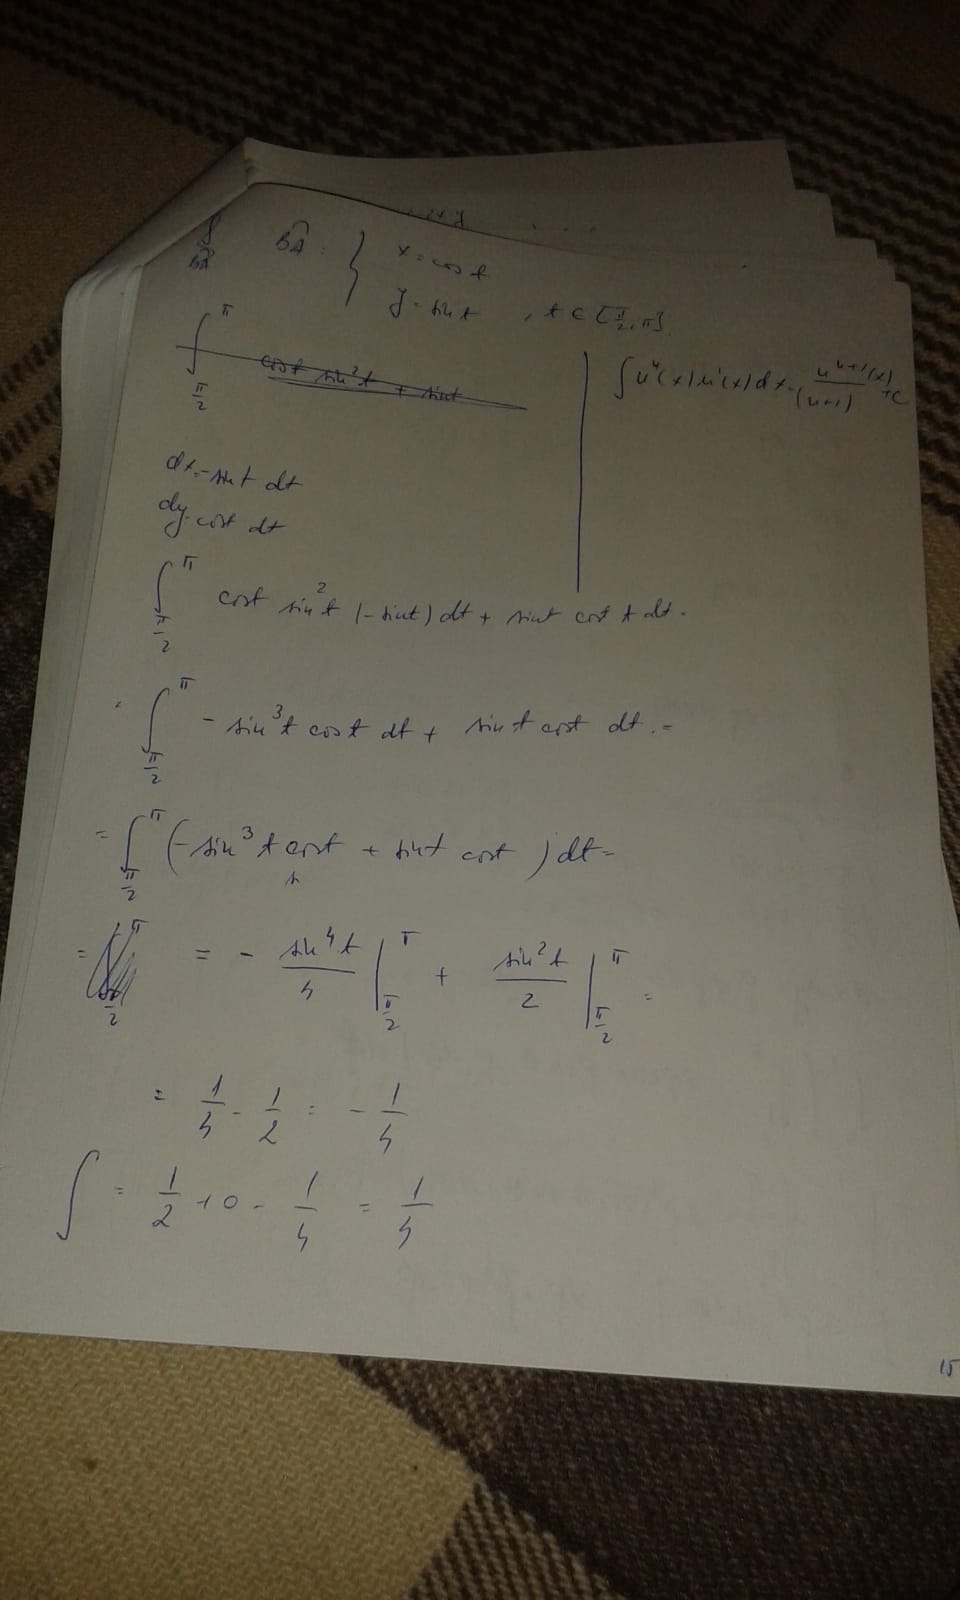 ∫ BA
BA : { x = cos t
y = sin t , t ∈ [π/2, π]
∫_{π/2}^{π} cos t sin² t + sin t
∫ uⁿ(x) u'(x) dx = uⁿ⁺¹(x)/(n+1) + C
dx = -sin t dt
dy = cos t dt
∫_{π/2}^{π} cos t sin² t (-sin t) dt + sin t cos t dt =
= ∫_{π/2}^{π} - sin³ t cos t dt + sin t cos t dt =
= ∫_{π/2}^{π} (- sin³ t cos t + sin t cos t) dt =
= = - sin⁴ t / 4 |_{π/2}^{π} + sin² t / 2 |_{π/2}^{π} =
= 1/4 - 1/2 = - 1/4
∫ = 1/2 + 0 - 1/4 = 1/4
15